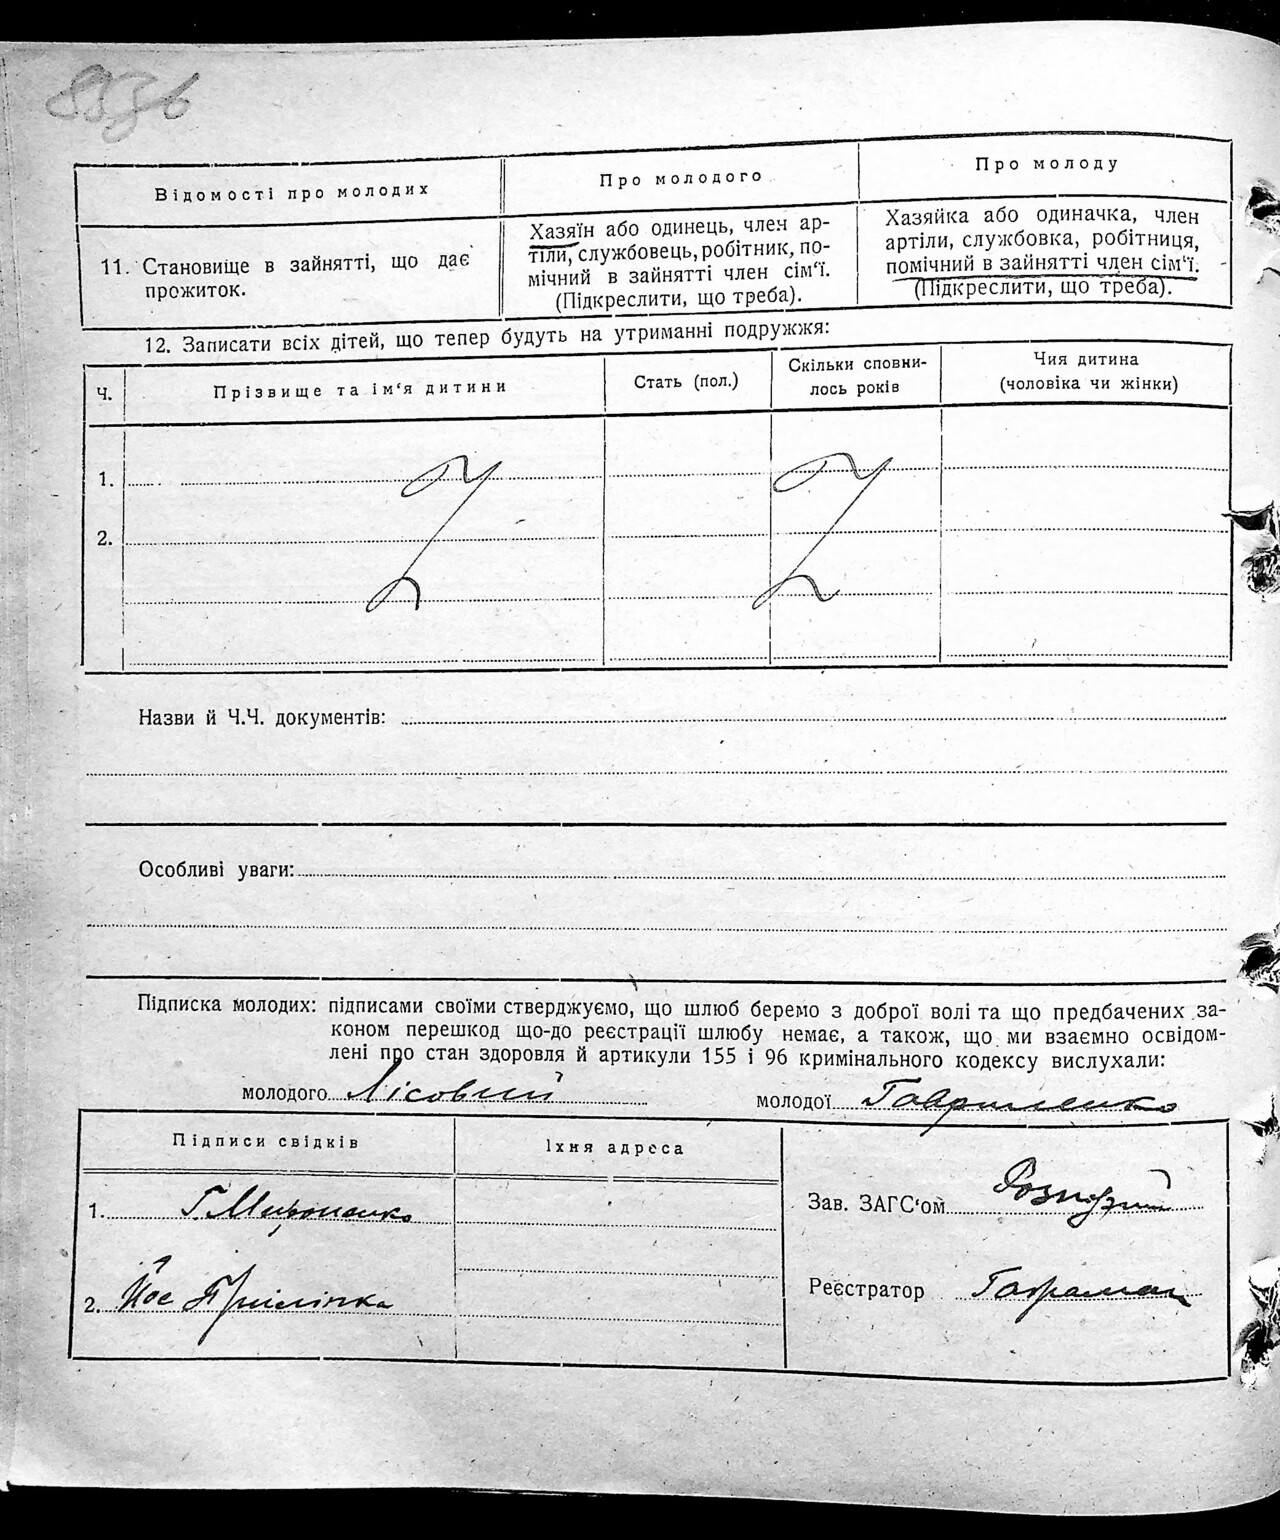 Відомості про молодих
Про молодого
Про молоду
11. Становище в зайнятті, що дає
прожиток.
Хазяїн або одинець, член ар-
тіли, службовець, робітник, по-
мічний в зайнятті член сім'ї.
(Підкреслити, що треба).
Хазяйка або одиначка, член
артіли, службовка, робітниця,
помічний в зайнятті член сім'ї.
(Підкреслити, що треба).
12. Записати всіх дітей, що тепер будуть на утриманні подружжя:
Ч.
Прізвище та ім'я дитини
Стать (пол.)
Скільки сповни-
лось років
Чия дитина
(чоловіка чи жінки)
1.
2.
Назви й Ч.Ч. документів:
Особливі уваги:
Підписка молодих: підписами своїми стверджуємо, що шлюб беремо з доброї волі та що предбачених за-
коном перешкод що-до реєстрації шлюбу немає, а також, що ми взаємно освідом-
лені про стан здоровля й артикули 155 і 96 кримінального кодексу вислухали:
молодого Лісовий
молодої Гавриленко
Підписи свідків
Їхня адреса
1. Г. Мироненко
2. Йос
Зав. ЗАГС'ом
Реєстратор